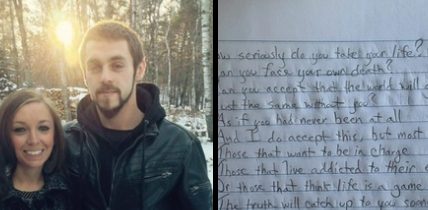 seriously do you take your life?
you face your own death?
you accept that the world will
the same without you?
As if you had never been at all
And I do accept this, but most
Those that want to be in charge
Those that live addicted to their
Or those that think life is a game
The truth will catch up to you soon